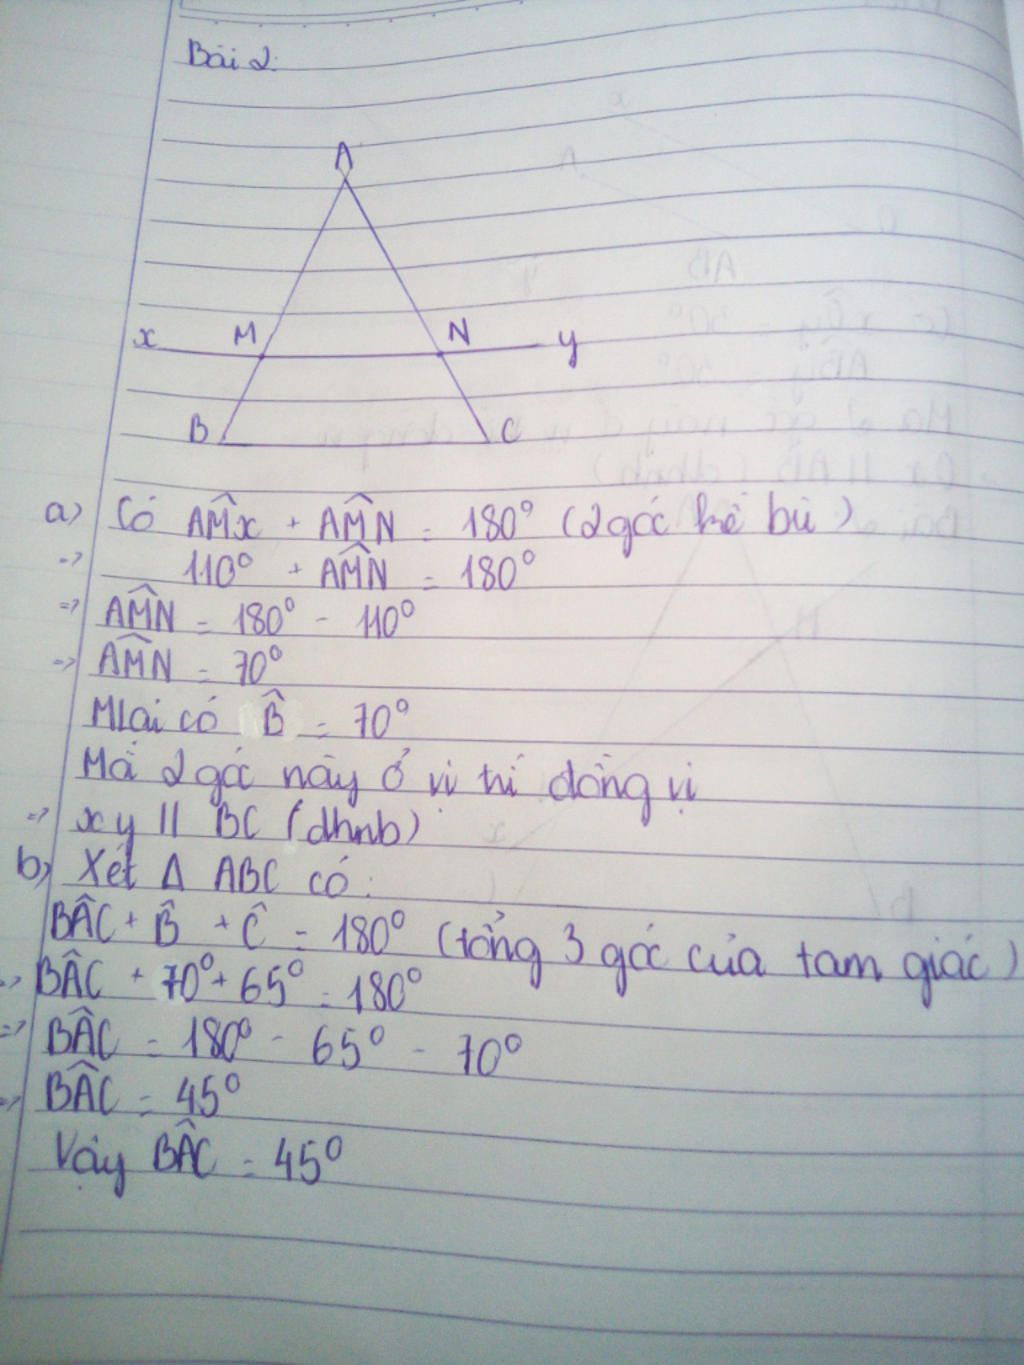 Bài 2:
A
x M N y
B C
a) Có AM̂x + AM̂N = 180° (2 góc kề bù)
=> 110° + AM̂N = 180°
=> AM̂N = 180° - 110°
=> AM̂N = 70°
Mlại có B̂ = 70°
Mà 2 góc này ở vị trí đồng vị
=> xy // BC (dhnb)
b) Xét Δ ABC có:
BÂC + B̂ + Ĉ = 180° (tổng 3 góc của tam giác)
=> BÂC + 70° + 65° = 180°
=> BÂC = 180° - 65° - 70°
=> BÂC = 45°
Vậy BÂC = 45°